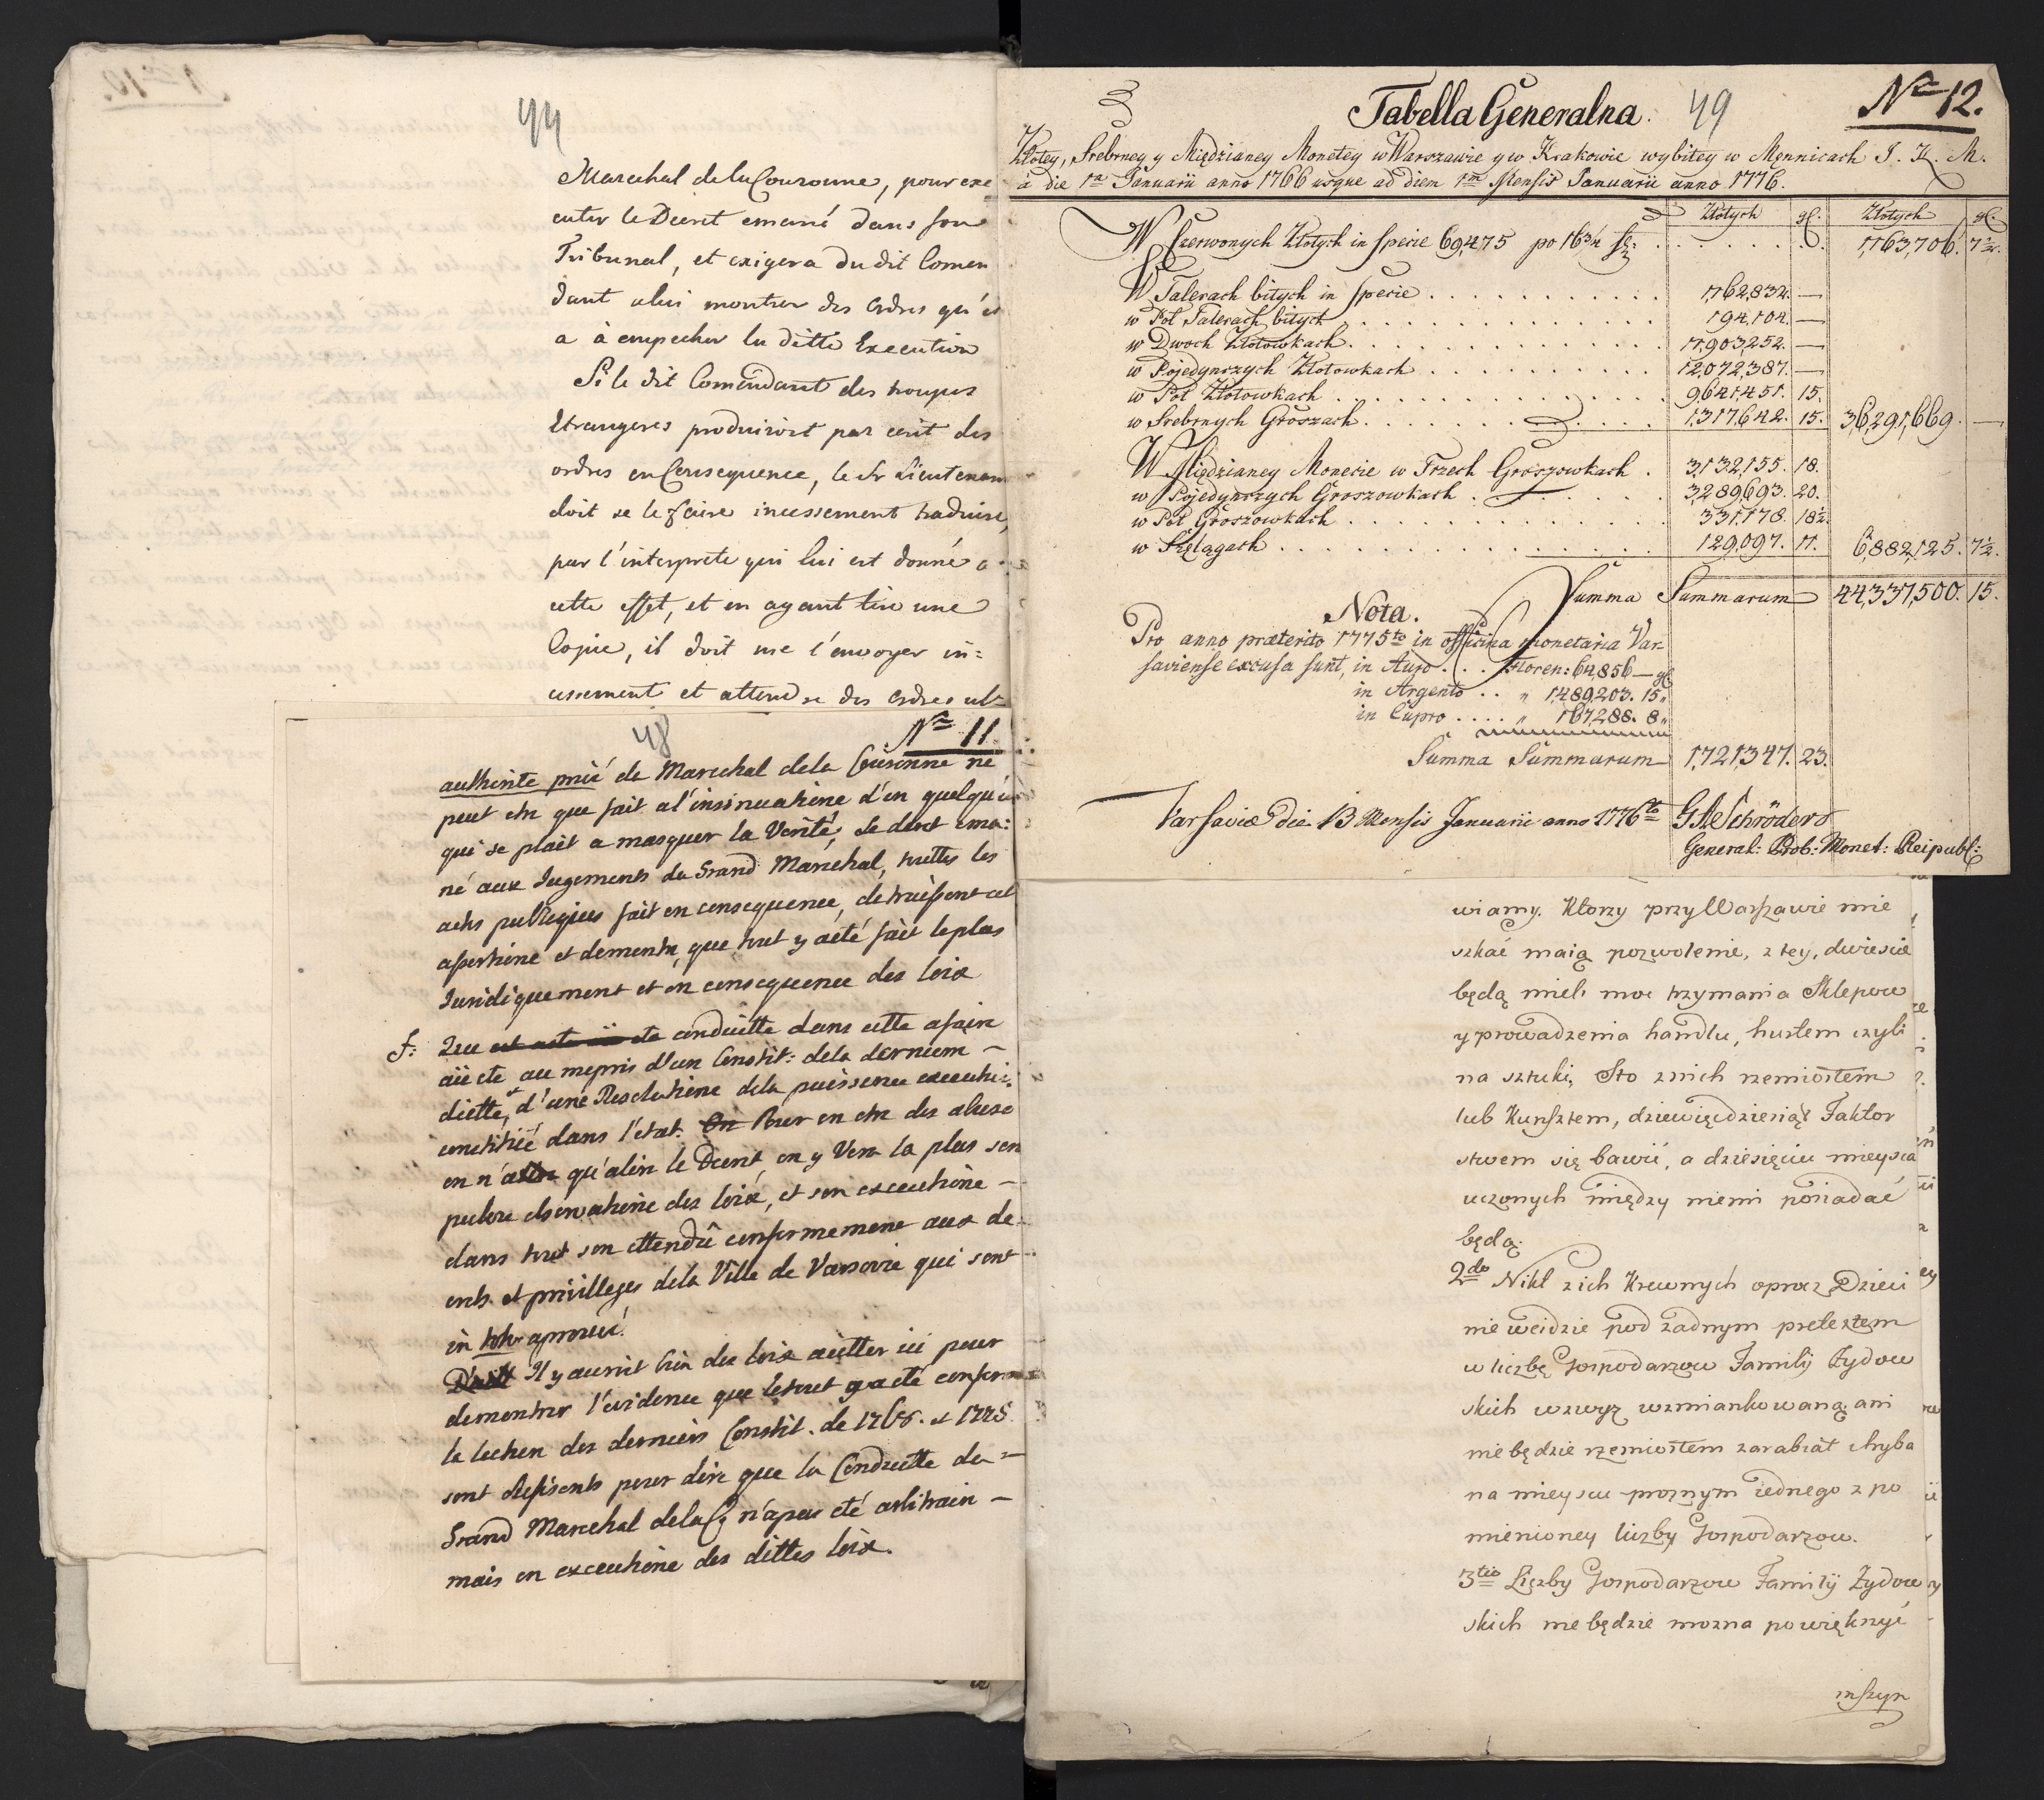 44
Marechal de la Couronne, pour exe
cuter le Decret emané dans son
Tribunal, et exigera du dit Comen
dant a lui montrer des ordres qu'il
a à empecher la ditte Execution
Si le dit Comendant des troupes
Etrangeres produiroit par ecrit des
ordres en Consequence, le Sr Lieutenant
doit se le faire incessement traduire,
par l'interprete qui lui est donné a
cette effet, et en ayant tiré une
Copie, il doit me l'envoyer in=
cessement et attendre des ordres ul=
48
Nro 11.
authinte prié de Marechal dela Couronne ne
peut etre que fait a l'insinuatione d'en quelqu'un
qui se plait a masquer la Verité, le decret ema:
né aux Jugements du Grand Maréchal, touttes les
acts publiques fait en consequence, detruissent cet
assertione et dementre, que tout y a été fait le plus
Juridiquement et en consequence des loix
f: Que conduitte dans cette afaire
aïe ete au mepris d'un Constit: dela derniere -
diette, et d'une Resolutione dela puissence executi:
constitüé dans l'etat. Pour en etre des abuse
on n'a qu'a lire le Decret, on y Vera la plus scru
puleuse observatione des loix, et son executione -
dans tout son ettendû conformement aux de:
crets et privilleges dela Ville de Varsovie qui sont
in toto aprouvé.
Il y auroit bien des loix a citter ici pour
demontrer l'evidence que le tout y a eté conforme
la lecture des derniers Constit. de 1768. et 1775.
sont sufisents pour dire que la Conduitte du =
Grand Marechal dela C: n'a pas eté arbitraire -
mais en executione des dittes loix.
Tabella Generalna. 49 Nro 12.
Złotey, Srebrney y Miedzianey Monetey w Warszawie y w Krakowie wybitey w Mennicach J. K. M.
à die 1ma Januarii anno 1766 usque ad diem 1m Mensis Januarii anno 1776.
Złotych gl: Złotych gl:
W Czerwonych Złotych in specie 69,475 po 16¾ fl: 1,763,706. 7½.
W Talerach bitych in specie 1,762,832. —
w Pół Talerach bitych 194,104. —
w Dwoch Złotowkach 11,903,252. —
w Pojedynczych Złotowkach 12,072,387. —
w Pół Złotowkach 9,641,451. 15.
w Srebrnych Groszach 1,317,642. 15. 36,291,669. —
W Miedzianey Monecie w Trzech Groszowkach 3,132,155. 18.
w Pojedynczych Groszowkach 3,289,693. 20.
w Pół Groszowkach 331,178. 18½
w Szelągach 129,097. 11. 6,882,125. 7½.
Summa Summarum 44,337,500. 15.
Nota.
Pro anno præterito 1775to in officina monetaria Var-
saviense excusa sunt, in Auro Floren: 64,856 — gl
in Argento „ 1,489,203. 15„
in Cupro „ 167,288. 8„
Summa Summarum 1,721,347. 23.
Varsaviæ die 13 Mensis Januarii anno 1776to G A Schröder
General: Prob: Monet: Reipubl:
wiamy. Ktorzy przy Warszawie mie
szkać maią pozwolenie, z tey, dwiescie
będą mieli moc trzymania Sklepow
y prowadzenia handlu, hurtem czyli
na sztuki, Sto z nich rzemiosłem
lub Kunsztem, dziewięćdziesiąt Faktor
stwem się bawić, a dziesięciu mieysca
uczonych między niemi posiadać
będą.
2do Nikt z ich Krewnych oprocz Dzieci
nie weidzie pod żadnym pretextem
w liczbę Gospodarzow Familij Żydow
skich wzwyż wzmiankowaną, ani
nie będzie rzemiosłem zarabiał chyba
na mieyscu prożnym iednego z po
mienioney liczby Gospodarzow.
3tio Liczby Gospodarzow Familij Żydow
skich nie będzie można powiększyć
inszym